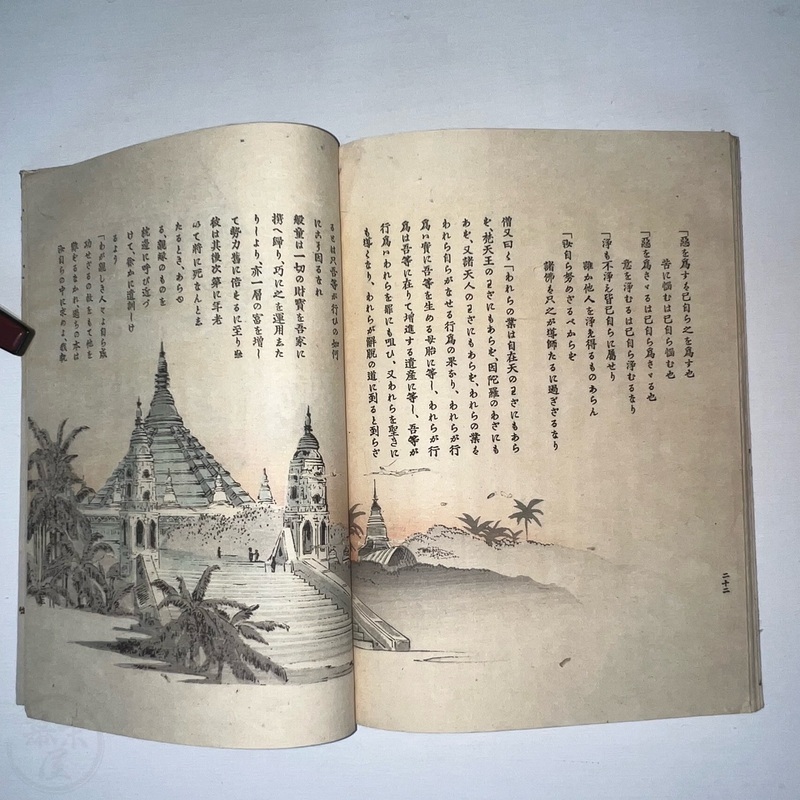 「惡を爲すも己自ら之を爲す也
苦に惱むは己自ら惱む也
「惡を爲さゞるは己自ら爲さゞる也
意を淨むるは己自ら淨むるなり
「淨も不淨も皆己自らに屬せり
誰か他人を淨め得るものあらん
「汝自ら努めざるべからず
諸佛も只之が導師たるに過ぎざるなり
僧又曰く「われらの業は自在天のわざにもあら
ず、梵天王のわざにもあらず、因陀羅のわざにも
あらず、又諸天人のわざにもあらず、われらの業を
われら自らがなせる行爲の果なり、われらが行
爲は實に吾等を生める母胎に等し、われらが行
爲は吾等に在りて増進する遺産に等し、吾等が
行爲はわれらを罪にも呪ひ、又われらを聖きに
も導くなり、われらが解脱の道に到ると到らざ
二十二
るとは只吾等が行ひの如何
に因るなれ
般童は一切の財寶を吾家に
携へ歸り、巧に之を運用した
りしより、亦一層の富を増し
て勢力舊に倍するに至りぬ
彼は其後次第に年老
いて將に死なんとし
たるとき、あらゆ
る親縁のものを
枕邊に呼び近づ
けて、徐かに遺訓しけ
るより
「わが親しき人々よ自ら成
功せざるの故をもて他を
難ずるなかれ、過ちの本は
汝自らの中に求めよ、我執